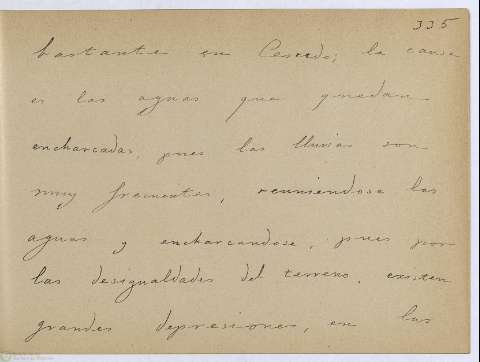 335
bastante en Cercado; la causa
es las aguas que quedan
encharcadas, pues las lluvias son
muy frecuentes, reuniendose las
aguas y encharcandose, pues por
las desigualdades del terreno, existen
grandes depresiones, en las